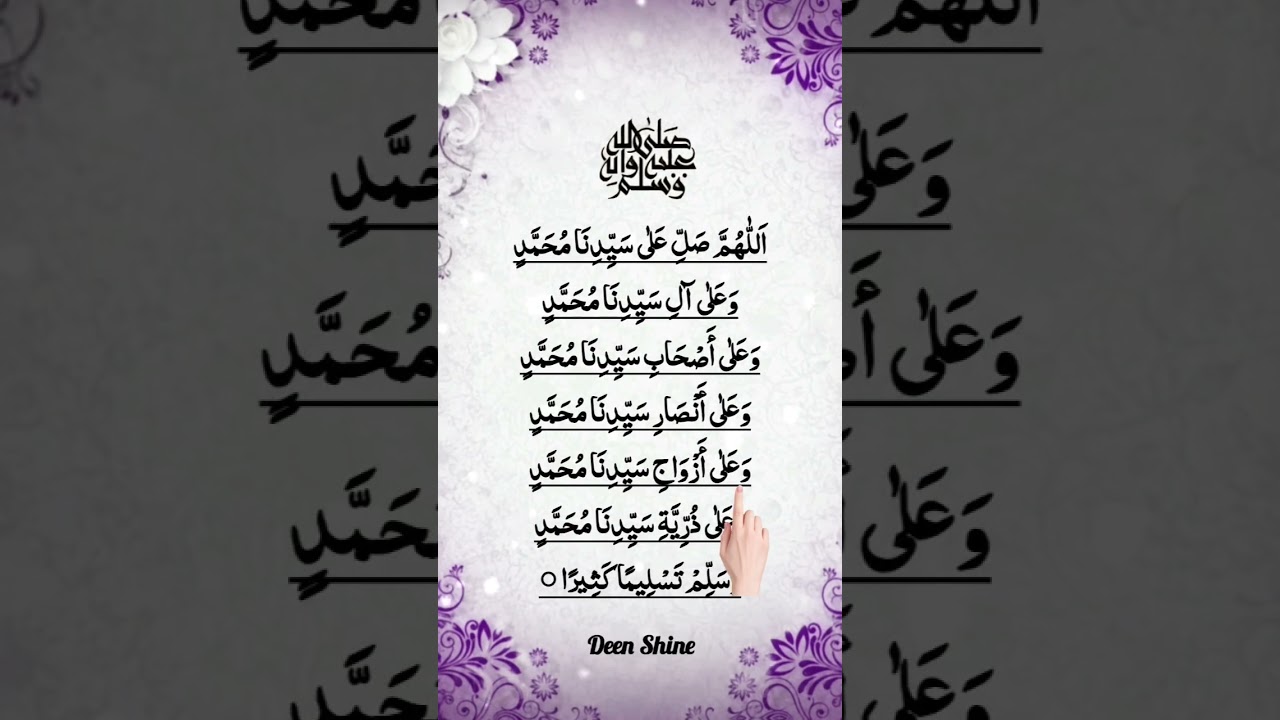 صَلَى الله عليه واٰلهٖ وسلم
اَللّٰهُمَّ صَلِّ عَلٰى سَيِّدِنَا مُحَمَّدٍ
وَعَلٰى آلِ سَيِّدِنَا مُحَمَّدٍ
وَعَلٰى أَصْحَابِ سَيِّدِنَا مُحَمَّدٍ
وَعَلٰى أَنْصَارِ سَيِّدِنَا مُحَمَّدٍ
وَعَلٰى أَزْوَاجِ سَيِّدِنَا مُحَمَّدٍ
عَلٰى ذُرِّيَّةِ سَيِّدِنَا مُحَمَّدٍ
سَلِّمْ تَسْلِيمًا كَثِيرًا ○
Deen Shine